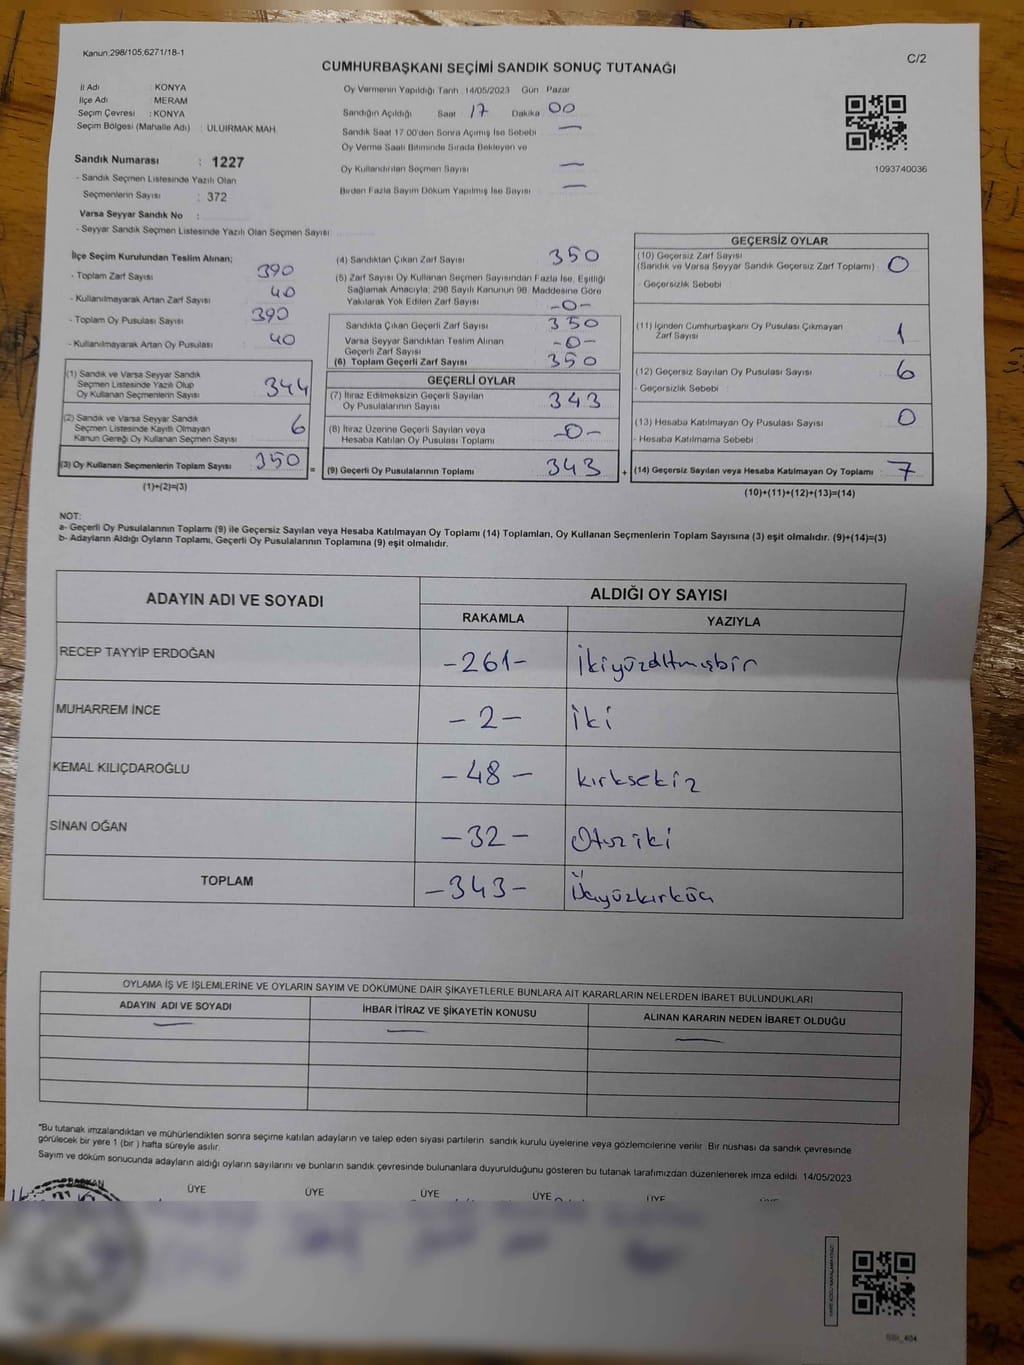 Kanun:298/105,6271/18-1
C/2
CUMHURBAŞKANI SEÇİMİ SANDIK SONUÇ TUTANAĞI
İl Adı : KONYA
İlçe Adı : MERAM
Seçim Çevresi : KONYA
Seçim Bölgesi (Mahalle Adı) : ULUIRMAK MAH.
Sandık Numarası : 1227
- Sandık Seçmen Listesinde Yazılı Olan
Seçmenlerin Sayısı : 372
Varsa Seyyar Sandık No :
- Seyyar Sandık Seçmen Listesinde Yazılı Olan Seçmen Sayısı:
Oy Vermenin Yapıldığı Tarih :14/05/2023 Gün : Pazar
Sandığın Açıldığı Saat : 17 Dakika : 00
Sandık Saat 17.00'den Sonra Açımış İse Sebebi : —
Oy Verme Saati Bitiminde Sırada Bekleyen ve
Oy Kullandırılan Seçmen Sayısı : —
Birden Fazla Sayım Döküm Yapılmış İse Sayısı : —
1093740036
İlçe Seçim Kurulundan Teslim Alınan;
- Toplam Zarf Sayısı : 390
- Kullanılmayarak Artan Zarf Sayısı : 40
- Toplam Oy Pusulası Sayısı : 390
- Kullanılmayarak Artan Oy Pusulası : 40
(1) Sandık ve Varsa Seyyar Sandık
Seçmen Listesinde Yazılı Olup
Oy Kullanan Seçmenlerin Sayısı : 344
(2) Sandık ve Varsa Seyyar Sandık
Seçmen Listesinde Kayıtlı Olmayan
Kanun Gereği Oy Kullanan Seçmen Sayısı : 6
(3) Oy Kullanan Seçmenlerin Toplam Sayısı : 350 =
(1)+(2)=(3)
(4) Sandıktan Çıkan Zarf Sayısı : 350
(5) Zarf Sayısı Oy Kullanan Seçmen Sayısından Fazla İse, Eşitliği
Sağlamak Amacıyla; 298 Sayılı Kanunun 98. Maddesine Göre
Yakılarak Yok Edilen Zarf Sayısı : -0-
Sandıkta Çıkan Geçerli Zarf Sayısı : 350
Varsa Seyyar Sandıktan Teslim Alınan
Geçerli Zarf Sayısı : -0-
(6) Toplam Geçerli Zarf Sayısı : 350
GEÇERLİ OYLAR
(7) İtiraz Edilmeksizin Geçerli Sayılan
Oy Pusulalarının Sayısı : 343
(8) İtiraz Üzerine Geçerli Sayılan veya
Hesaba Katılan Oy Pusulası Toplamı : -0-
(9) Geçerli Oy Pusulalarının Toplamı : 343 +
GEÇERSİZ OYLAR
(10) Geçersiz Zarf Sayısı
(Sandık ve Varsa Seyyar Sandık Geçersiz Zarf Toplamı) : 0
- Geçersizlik Sebebi :
(11) İçinden Cumhurbaşkanı Oy Pusulası Çıkmayan
Zarf Sayısı : 1
(12) Geçersiz Sayılan Oy Pusulası Sayısı : 6
- Geçersizlik Sebebi :
(13) Hesaba Katılmayan Oy Pusulası Sayısı : 0
- Hesaba Katılmama Sebebi :
(14) Geçersiz Sayılan veya Hesaba Katılmayan Oy Toplamı : 7
(10)+(11)+(12)+(13)=(14)
NOT:
a- Geçerli Oy Pusulalarının Toplamı (9) ile Geçersiz Sayılan veya Hesaba Katılmayan Oy Toplamı (14) Toplamları, Oy Kullanan Seçmenlerin Toplam Sayısına (3) eşit olmalıdır. (9)+(14)=(3)
b- Adayların Aldığı Oyların Toplamı, Geçerli Oy Pusulalarının Toplamına (9) eşit olmalıdır.
ADAYIN ADI VE SOYADI
ALDIĞI OY SAYISI
RAKAMLA YAZIYLA
RECEP TAYYİP ERDOĞAN -261- İkiyüzaltmışbir
MUHARREM İNCE -2- İki
KEMAL KILIÇDAROĞLU -48- kırksekiz
SİNAN OĞAN -32- Otuziki
TOPLAM -343- Üçyüzkırküç
OYLAMA İŞ VE İŞLEMLERİNE VE OYLARIN SAYIM VE DÖKÜMÜNE DAİR ŞİKAYETLERLE BUNLARA AİT KARARLARIN NELERDEN İBARET BULUNDUKLARI
ADAYIN ADI VE SOYADI İHBAR İTİRAZ VE ŞİKAYETİN KONUSU ALINAN KARARIN NEDEN İBARET OLDUĞU
— — —
"Bu tutanak imzalandıktan ve mühürlendikten sonra seçime katılan adayların ve talep eden siyasi partilerin sandık kurulu üyelerine veya gözlemcilerine verilir. Bir nüshası da sandık çevresinde
görülecek bir yere 1 (bir ) hafta süreyle asılır.
Sayım ve döküm sonucunda adayların aldığı oyların sayılarını ve bunların sandık çevresinde bulunanlara duyurulduğunu gösteren bu tutanak tarafımızdan düzenlenerek imza edildi. 14/05/2023
BAŞKAN ÜYE ÜYE ÜYE ÜYE ÜYE